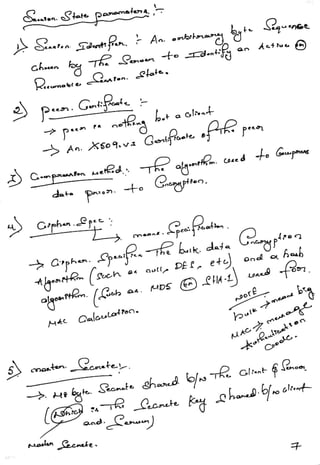 Session State parameters :-
1) Session Identifier :- An arbitrary byte Sequence
chosen by The Server to Identify an Active or
Resumable Session State.
2) peer Certificate :-
→ peer is nothing but a client
→ An X509.v3 Certificate of The peer
3) Compression method :- The algorithm used to Compress
data prior to Encryption.
4) Cipher Spec :
means Specification.
→ Cipher Specifies The bulk data Encryption
Algorithm (Such as null, DES, etc) and a hash
algorithm (Such as MD5 or SHA-1) used for
MAC Calculation.
NOTE
bulk → means big
MAC → message
Authentication
Code.
5) master Secrete :-
→ 48 byte Secrete shared b/w The Client & Server
(Which is The Secrete key Shared b/w client
and Server)
Master Secrete.
7